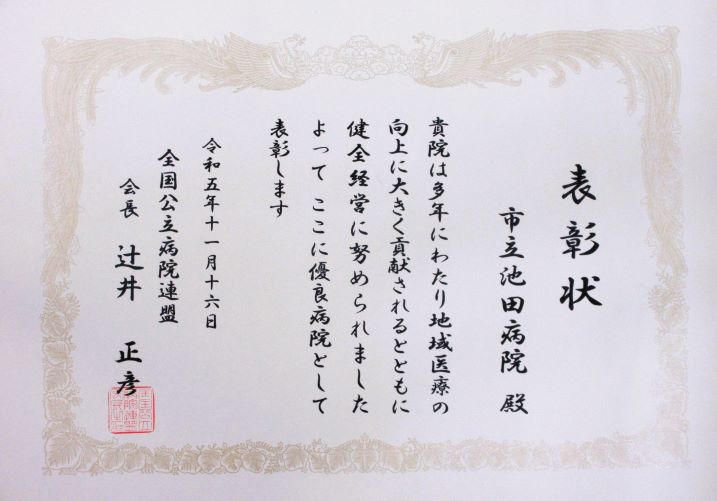 表彰状
市立池田病院 殿
貴院は多年にわたり地域医療の
向上に大きく貢献されるとともに
健全経営に努められました
よって ここに優良病院として
表彰します
令和五年十一月十六日
全国公立病院連盟
会長 辻井 正彦